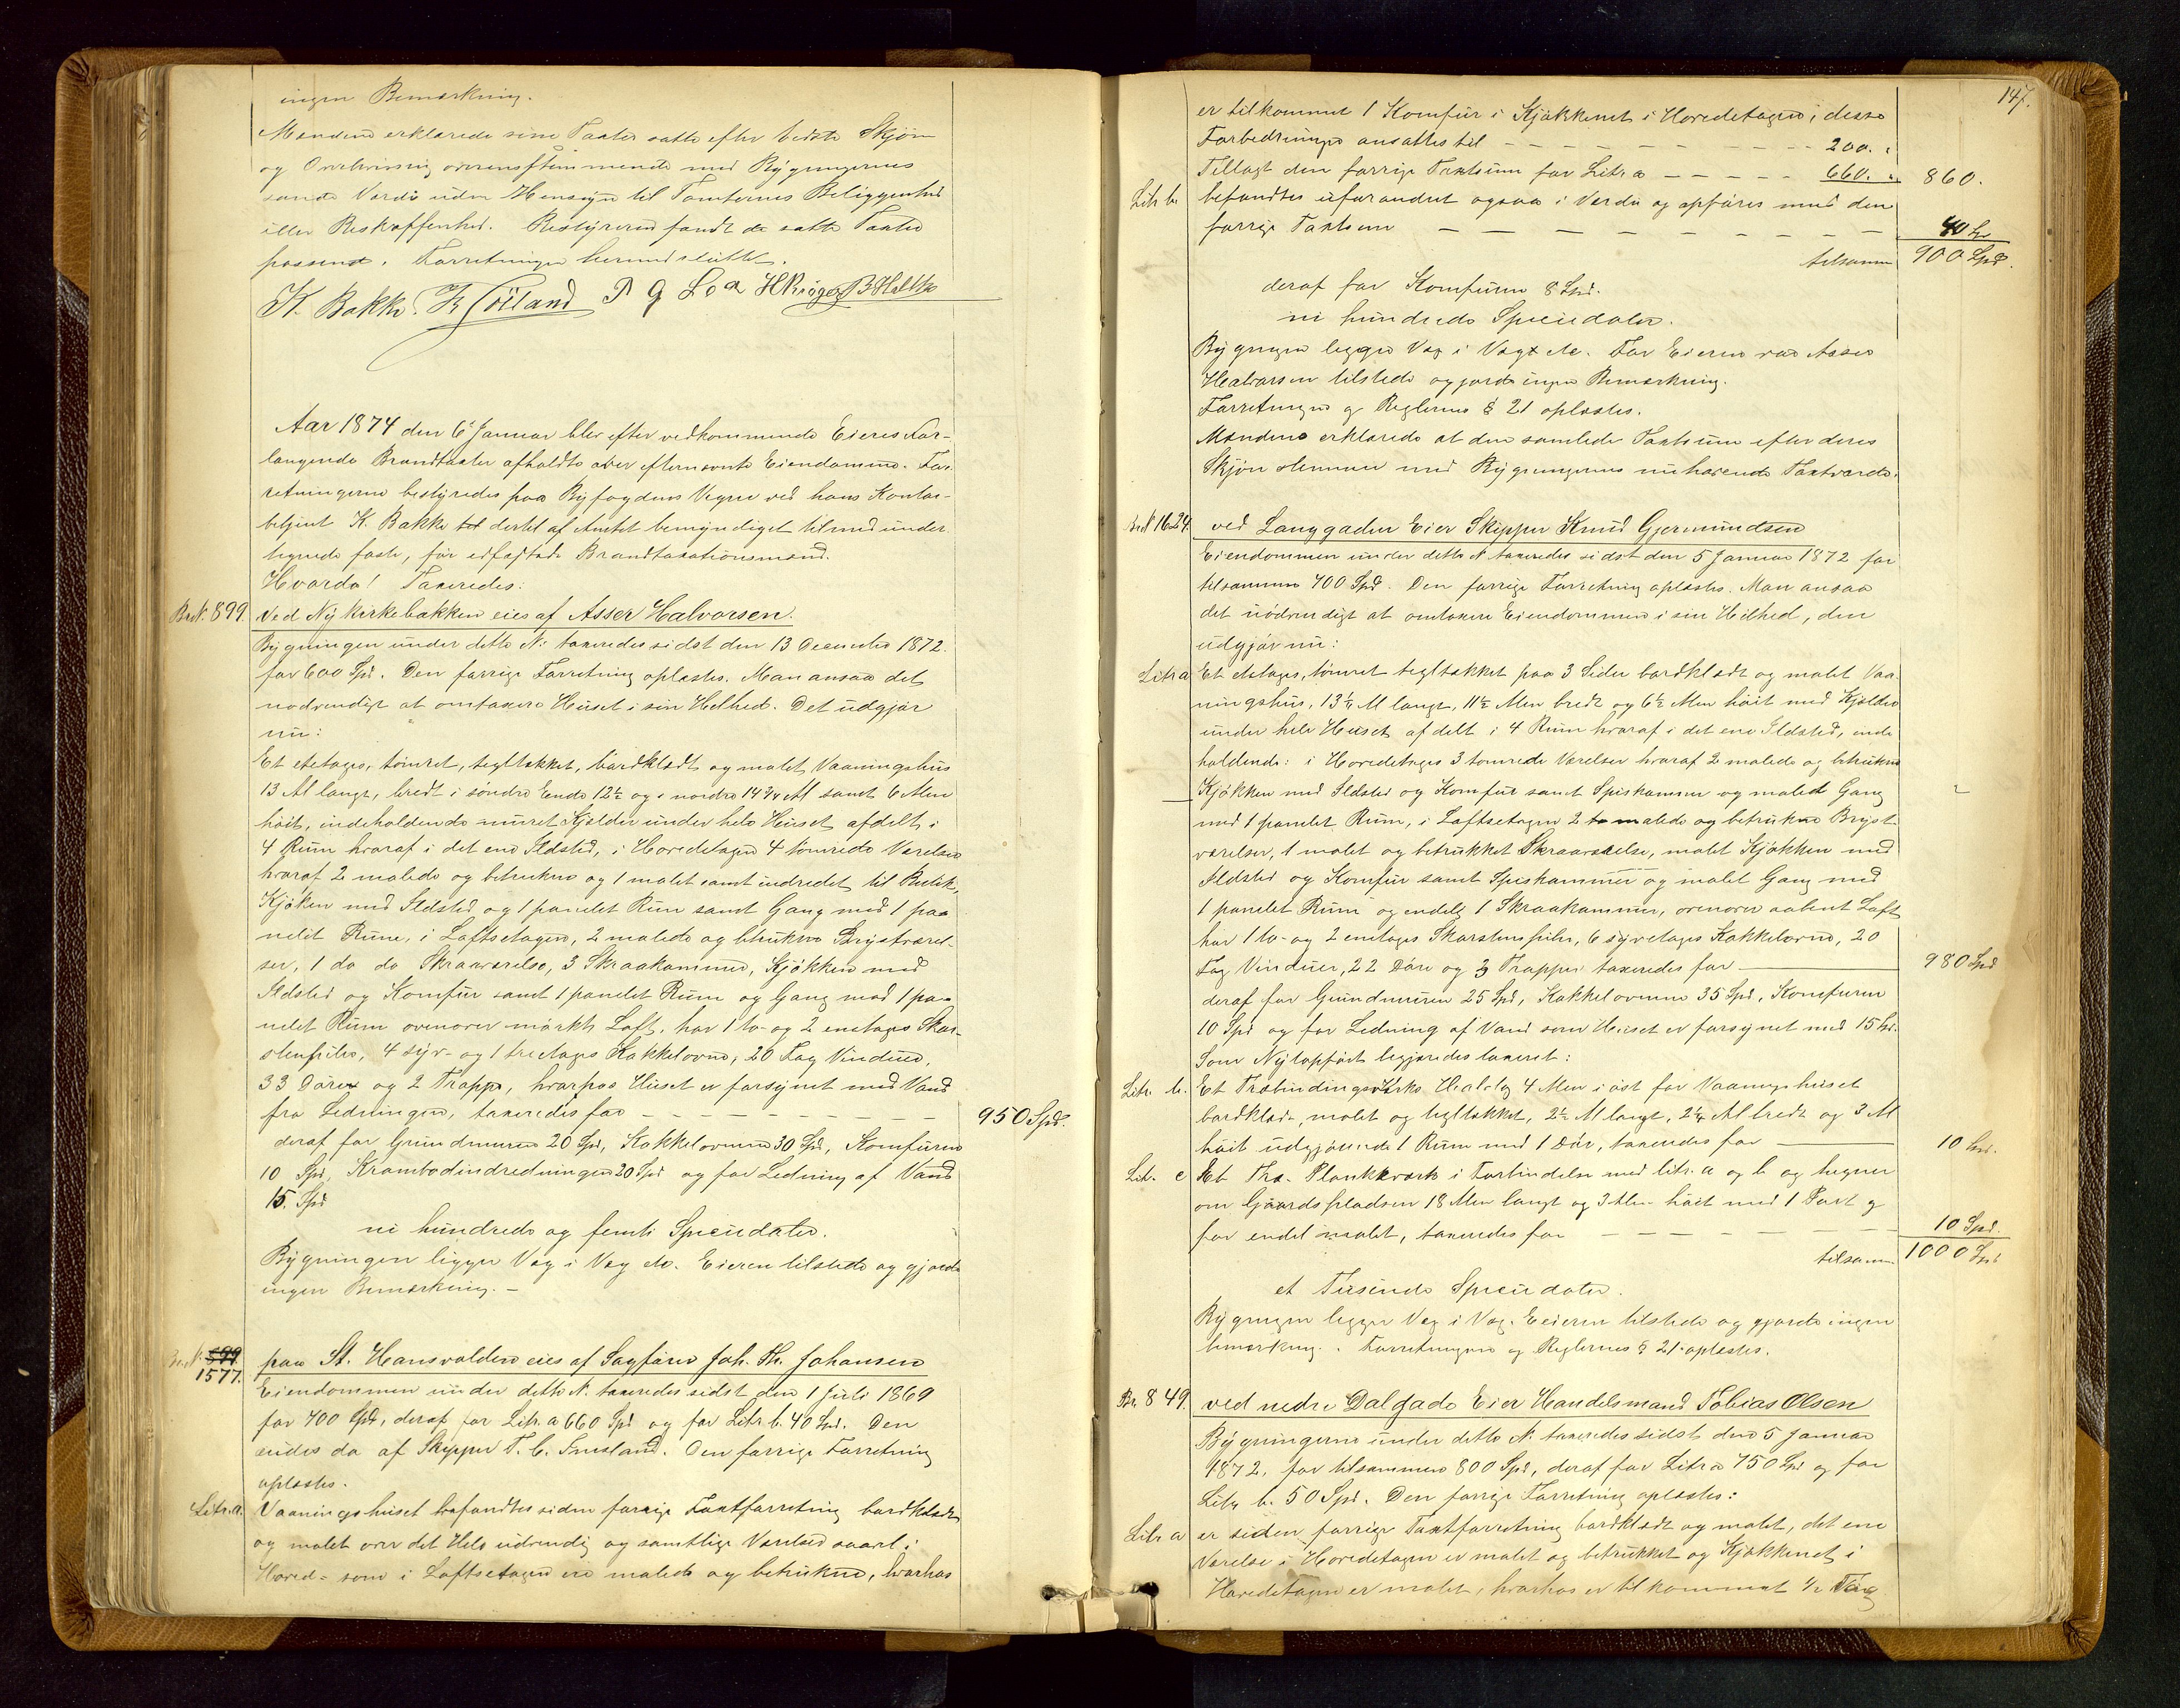 ingen Bemærkning.
Mændene erklærede sine Taxter satte efter bedste Skjøn
og Overbevisning overensstemmende med Bygningernes
sande Værdi uden Hensyn til Tomternes Beliggenhed
eller Beskaffenhed. Bestyreren fandt de satte Taxter
passende. Forretningen hermed sluttet.
K. Bakke.
Aar 1874 den 6 Januar blev efter vedkommende Eieres For-
langende Brandtaxter afholdte over efternævnte Eiendomme. For-
retningerne bestyredes paa Byfogdens Vegne ved hans Kontor-
betjent K. Bakke dertil af Amtet bemyndiget tilmed under-
tegnede faste, før edfæstede Brandtaxationsmænd.
Hvorda! Taxeredes:
Br.N. 899. ved Nykirkebakken eies af Asser Halvorsen.
Bygningen under dette N: taxeredes sidst den 13 December 1872
for 600 Spd. Den forrige Forretning oplæstes. Man ansaa det
nødvendigt at omtaxere Huset i sin Helhed. Det udgjør
nu:
Et etetages, tømret, tegltækket, bordklædt og malet Vaaningshus
13 Al langt, bredt i søndre Ende 12½ og i nordre 14¾ Al samt 6 Alen
høit, indeholdende muret Kjelder under hele Huset afdelt i
4 Rum hvoraf i det ene Ildsted, i Hovedetagen 4 tømrede Værelser
hvoraf 2 malede og betrukne og 1 malet samt indredet til Butik,
Kjøken med Ildsted og 1 panelet Rum samt Gang med 1 pa-
nelet Rum, i Loftsetagen, 2 malede og betrukne Brystværel-
ser, 1 do do Skraaværelse, 3 Skraakammer, Kjøkken med
Ildsted og Komfur samt 1 panelet Rum og Gang med 1 pa-
nelet Rum ovenover mørkt Loft. har 1 to- og 2 enetages Skor-
stenspiber, 4 syv- og 1 treetages Kakkelovne, 20 Fag Vinduer,
33 Døre og 2 Trapper, hvorhos Huset er forsynet med Vand
fra Ledningen, taxeredes for - - - - - - - - 950 Spd.
deraf for Grundmuren 20 Spd, Kakkelovnene 30 Spd, Komfuren
10 Spd, Krambodindredningen 20 Spd og for Ledning af Vand
15. Spd
ni hundrede og femti Speciedaler.
Bygningen ligger Væg i Væg etc. Eieren tilstede og gjorde
ingen Bemærkning. -
Br.N. 899 1577. paa St. Hansvolden eies af Sagfører Joh. Th. Johansen
Eiendommen under dette N. taxeredes sidst den 1 Juli 1869
for 700 Spd, deraf for Litr. a 660 Spd og for Litr b. 40 Spd. Den
eiedes da af Skipper T. C. Den forrige Forretning
oplæstes.
Litr. a. Vaaningshuset befandtes siden forrige Taxtforretning bordklædt
og malet over det Hele udvendig og samtlige Værelser saavel i
Hoved- som i Loftsetagen ere malede og betrukne, hvorhos
147.
er tilkommet 1 Komfur i Kjøkkenet i Hovedetagen; disse
Forbedringer ansattes til - - - - - - - - 200. "
Tillagt den forrige Taxtsum for Litr. a - - - - - 660. " 860.
Litr b. befandtes uforandret ogsaa i Værdi og opføres med den
forrige Taxtsum - - - - - - - - - 40 Spd
tilsammen 900 Spd.
deraf for Komfuren 8 Spd.
ni hundrede Speciedaler.
Bygningen ligger Væg i Væg etc. For Eieren var Asser
Halvorsen tilstede og gjorde ingen Bemærkning.
Forretningen og Reglernes § 21 oplæstes.
Mændene erklærede at den samlede Taxtsum efter deres
Skjøn stemmer med Bygningernes nuhavende Taxtværdi.
Br.N 1624. ved Langgaden Eier Skipper Knud Gjermundsen
Eiendommen under dette N. taxeredes sidst den 5 Januar 1872 for
tilsammen 700 Spd. Den forrige Forretning oplæstes. Man ansaa
det nødvendigt at omtaxere Eiendommen i sin Helhed, den
udgjør nu:
Litr a Et etetages, tømret tegltækket paa 3 Sider bordklædt og malet Vaa-
ningshus, 13¼ Al langt, 11½ Alen bredt og 6½ Alen høit med Kjelder
under hele Huset afdelt i 4 Rum hvoraf i det ene Ildsted, inde-
holdende: i Hovedetagen 3 tømrede Værelser hvoraf 2 malede og betrukne
Kjøkken med Ildsted og Komfur samt Spiskammer og malet Gang
med 1 panelet Rum, i Loftsetagen 2 malede og betrukne Bryst-
værelser, 1 malet og betrukket Skraaværelse, malet Kjøkken med
Ildsted og Komfur samt Spiskammer og malet Gang med
1 panelet Rum og endelig 1 Skraakammer, ovenover aabent Loft
har 1 to- og 2 enetages Skorstenspiber, 6 syvetages Kakkelovne, 20
Fag Vinduer, 22 Døre og 3 Trapper taxeredes for - 980 Spd
deraf for Grundmuren 25 Spd, Kakkelovnene 35 Spd, Komfuren
10 Spd og for Ledning af Vand som Huset er forsynet med 15 Spd.
Som Nytopført begjæredes taxeret:
Litr. b. Et Træbindingsværks 4 Alen i øst for Vaaningshuset
bordklædt, malet og tegltækket, 2½ Al langt, 2¼ Al bredt og 3 Al
høit udgjørende 1 Rum med 1 Dør, taxeredes for - 10 Spd.
Litr. c Et Træ- Plankeværk i Forbindelse med litr. a og b og hegner
om Gaardspladsen 18 Alen langt og 3 Alen høit med 1 Port og
for endel malet, taxeredes for - - - - - - 10 Spd.
tilsammen 1000 Spd
et Tusinde Speciedaler.
Bygningen ligger Væg i Væg. Eieren tilstede og gjorde ingen
bemærkning. Forretningen og Reglernes § 21 oplæstes.
Br. 849. ved nedre Dalgade Eier Handelsmand Tobias Olsen
Bygningerne under dette N. taxeredes sidst den 5 Januar
1872. for tilsammen 800 Spd, deraf for Litr a 750 Spd og for
Litr b. 50 Spd. Den forrige Forretning oplæstes:
Litr. a er siden forrige Taxtforretning bordklædt og malet, det ene
Værelse i Hovedetagen er malet og betrukket og Kjøkkenet i
Hovedetagen er malet, hvorhos er tilkommet ½ Fag